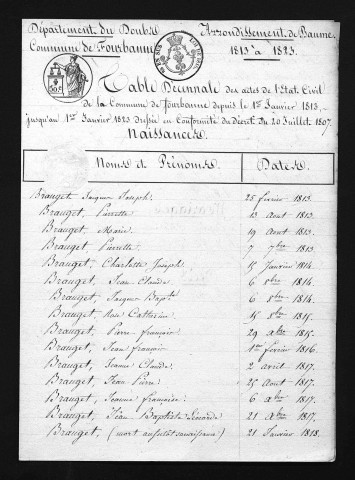 Département du Doubs
Arrondissement de Baume.
Commune de Fourbanne
1813 à 1823.
Table Decennale des actes de l'Etat Civil
de la Commune de fourbanne depuis le 1er Janvier 1813,
jusqu'au 1er Janvier 1823 dressée en Conformité du Décret du 20 Juillet 1807.
Naissances.
Noms et Prénoms. Dates.
Brauget Jacques Joseph. 25 fevrier 1813.
Brauget, Pierrette 13 Aout 1813.
Brauget, Marie. 19 Aout 1813.
Brauget, Pierrette 7 7bre 1813
Brauget, Charlotte Joseph. 15 Janvier 1814.
Brauget, Jean Claude 6 8bre 1814
Brauget, Jacques Bapte 6 8bre 1814.
Brauget, Rose Catherine 15 8bre 1815.
Brauget, Pierre françois 29 Xbre 1815.
Brauget, Jean françois 1er fevrier 1816.
Brauget, Jeanne Claude. 2 avril 1817.
Brauget, Jean Pierre. 25 Aout 1817.
Brauget, Jeanne françoise. 6 Xbre 1817.
Brauget, Jean Baptiste 21 Xbre 1817.
Brauget, (mort aussitot naissance) 21 Janvier 1818.